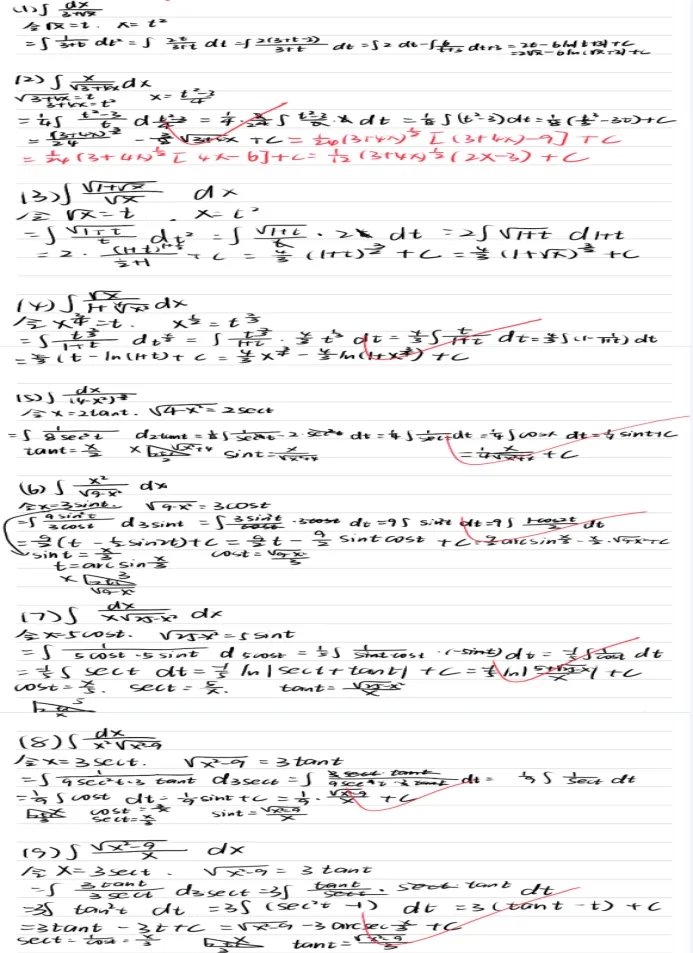 (1) ∫ dx/(3+√x)
令√x=t. x=t²
=∫ 1/(3+t) dt² = ∫ 2t/(3+t) dt =∫ 2(3+t-3)/(3+t) dt = ∫2 dt-∫ 6/(t+3) dt+3 = 2t-6ln|t+3|+C
=2√x-6ln(√x+3)+C
(2) ∫ x/√(3+4x) dx
√(3+4x)=t x=(t²-3)/4
3+4x=t²
=1/4∫ (t²-3)/t d(t²-3)/4 = ∫ (t²-3) dt = 1/8 ∫(t²-3)dt = 1/8(t³/3-3t)+C
= (3+4x)^(3/2)/24 - 3/8√(3+4x)+C = 1/24(3+4x)^(1/2)[(3+4x)-9]+C
= 1/24(3+4x)^(1/2)[4x-6]+C = 1/12(3+4x)^(1/2)(2x-3)+C
(3) ∫ √(1+√x)/√x dx
令 √x=t. x=t²
=∫ √(1+t)/t dt² = ∫ √(1+t)/t · 2t dt = 2∫√(1+t) d1+t
= 2· (1+t)^(1/2+1)/(1/2+1) + C = 4/3 (1+t)^(3/2) + C = 4/3 (1+√x)^(3/2) + C
(4) ∫ √x/(1+⁴√x³) dx
令 x^(3/4)=t. x^(1/2)=t^(2/3)
=∫ t^(2/3)/(1+t) dt^(4/3) = ∫ t^(2/3)/(1+t) · 4/3 t^(1/3) dt = 4/3∫ t/(1+t) dt = 4/3∫(1-1/(1+t)) dt
=4/3(t-ln(1+t))+C = 4/3x^(3/4)-4/3ln(1+x^(3/4))+C
(5) ∫ dx/(4-x²)^(3/2)
令x=2tant. √(4-x²)=2sect
=∫ 1/(8sec³t) d2tant=1/8∫ 1/sec³t · 2·sec²t dt = 1/4∫ 1/sect dt=1/4∫cost dt=1/4sint+C
tant=x/2 sint=x/√(x²+4) =1/4 x/√(x²+4) +C
(6) ∫ x²/√(9-x²) dx
令x=3sint. √(9-x²)=3cost
=∫ 9sin²t/3cost d3sint =∫ 3sin²t/cost ·3cost dt =9∫ sin²t dt=9∫ (1-cos2t)/2 dt
=9/2(t-1/2sin2t)+C = 9/2t-9/2sintcost+C=9/2arcsin x/3-x/2·√(9-x²)+C
sint=x/3 cost=√(9-x²)/3
t=arcsin x/3
x 3
√(9-x²)
(7) ∫ dx/(x√(25-x²)) dx
令x=5cost. √(25-x²)=5sint
=∫ 1/(5cost·5sint) d5cost=1/5∫ 1/(sintcost)·(-sint)dt = -1/5∫ 1/cost dt
=-1/5∫sect dt=-1/5 ln|sect+tant|+C=-1/5 ln|(5+√(25-x²))/x|+C
cost=x/5. sect=5/x. tant=√(25-x²)/x
5
x
(8) ∫ dx/(x²√(x²-9))
令x=3sect. √(x²-9)=3tant
=∫ 1/(9sec²t·3tant) d3sect=∫ 3sect·tant/(9sec²t·3tant) dt= 1/9∫ 1/sect dt
=1/9∫cost dt=1/9sint+C=1/9·√(x²-9)/x+C
cost=3/x sint=√(x²-9)/x
sect=x/3
(9) ∫ √(x²-9)/x dx
令 x=3sect. √(x²-9)=3tant
=∫ 3tant/3sect d3sect=3∫ tant/sect·sect tant dt
=3∫ tan²t dt =3∫(sec²t-1) dt =3(tant-t)+C
=3tant-3t+C=√(x²-9)-3arcsec x/3+C
sect=1/cost=x/3 tant=√(x²-9)/3